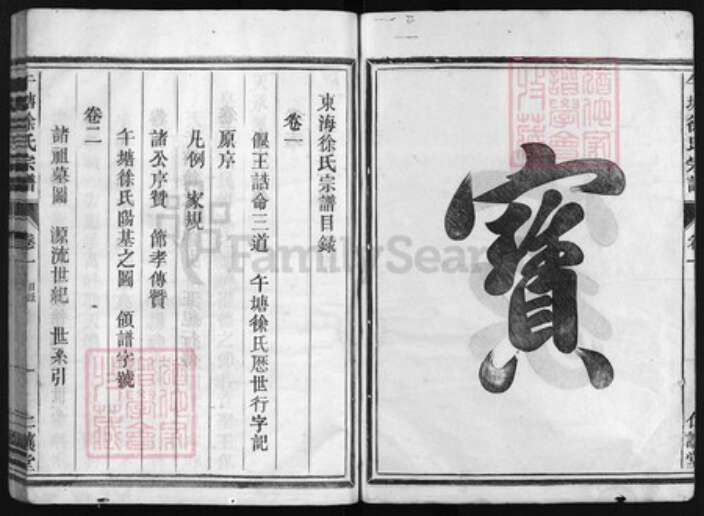 寶
東海徐氏宗譜目錄
卷一
偃王誥命三道 午塘徐氏歷世行字記
原序
凡例 家規
諸公序贊 節孝傳贊
午塘徐氏陽基之圖 領譜字號
卷二
諸祖墓圖 源流世紀 世系引
午塘徐氏宗譜
卷一
目錄
一
FamilySearch